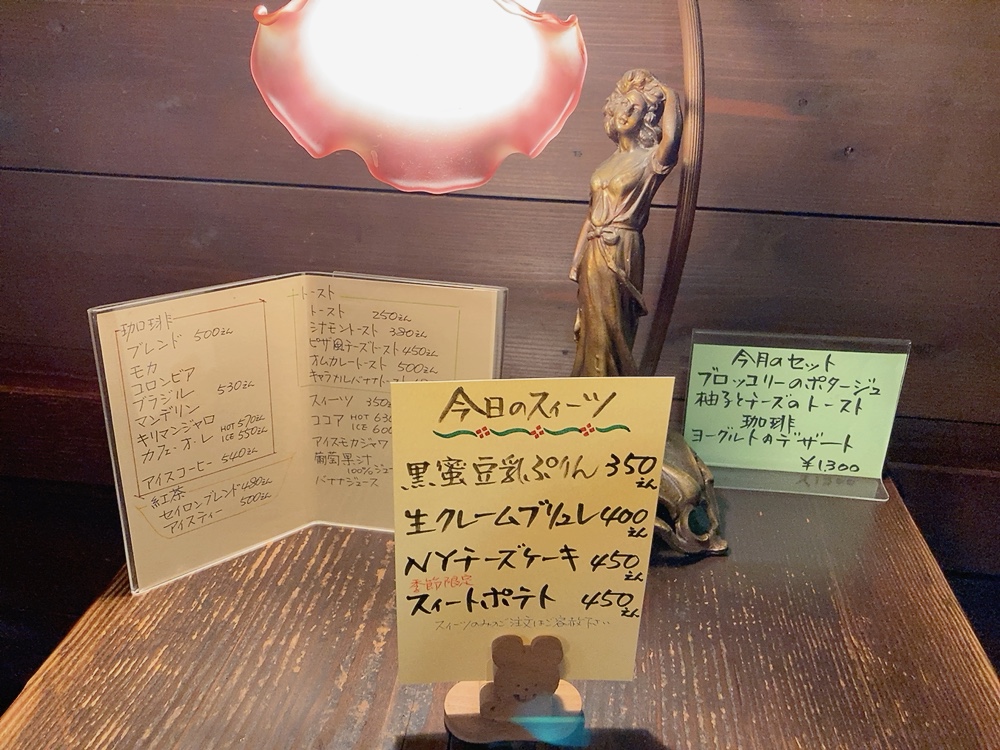 珈琲
ブレンド 500えん
モカ
コロンビア
ブラジル 530えん
マンデリン
キリマンジャロ
カフェ・オ・レ HOT 570えん
ICE 550えん
アイスコーヒー 540えん
紅茶
セイロンブレンド 480えん
アイスティー 500えん
トースト
トースト 250えん
シナモントースト 380えん
ピザ風チーズトースト 450えん
オムカレートースト 500えん
キャラメルバナナトースト
スイーツ 350
ココア HOT 630
ICE 600
アイスモカジャワ
葡萄果汁
100%ジュース
バナナジュース
今日のスィーツ
黒蜜豆乳ぷりん 350えん
生クレームブリュレ 400えん
NYチーズケーキ 450えん
季節限定
スィートポテト 450えん
スィーツのみのご注文はご容赦下さい
今月のセット
ブロッコリーのポタージュ
柚子とチーズのトースト
珈琲
ヨーグルトのデザート
¥1300